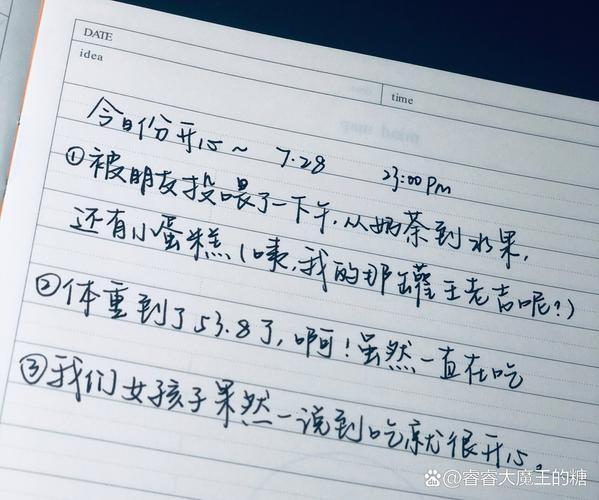 DATE
idea
time
今日份开心~ 7.28 23:00 pm
①被朋友投喂了一下午,从奶茶到水果,
还有小蛋糕(咦,我的那罐王老吉呢?)
②体重到了53.8了,啊!虽然一直在吃
③我们女孩子果然一说到吃就很开心。
@睿睿大魔王的糖